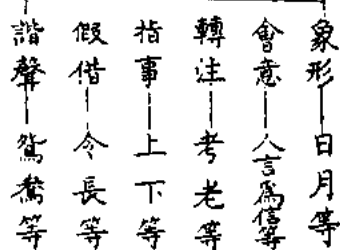 象形—日月等
會意—人言爲信等
轉注—考老等
指事—上下等
假借—令長等
諧聲—等